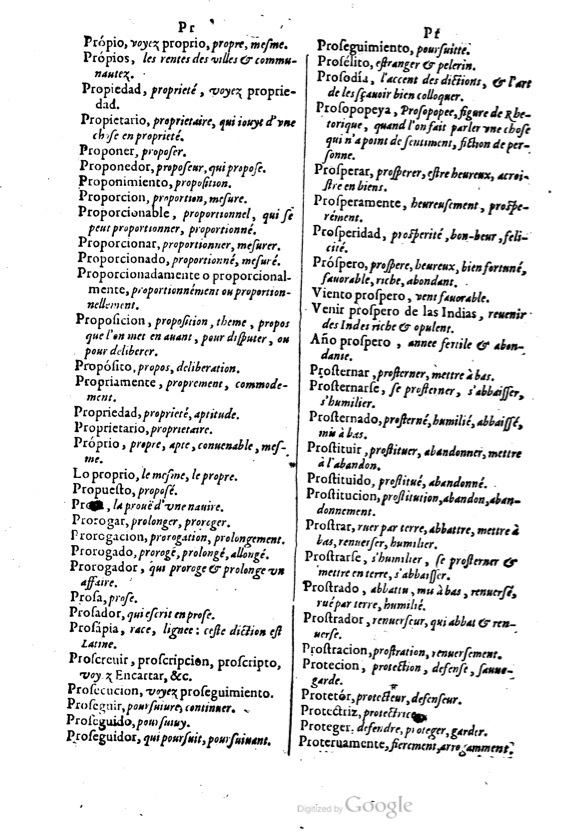 Pr
Própio, voyez proprio, propre, mesme.
Própios, les rentes des villes & commu-
nautez.
Propiedad, proprieté, voyez proprie-
dad.
Propietario, proprietaire, qui iouyt d'vne
chose en proprieté.
Proponer, proposer.
Proponedor, proposeur, qui propose.
Proponimiento, proposition.
Proporcion, proportion, mesure.
Proporcionable, proportionnel, qui se
peut proportionner, proportionné.
Proporcionar, proportionner, mesurer.
Proporcionado, proportionné, mesuré.
Proporcionadamente o proporcional-
mente, proportionnément ou proportion-
nellement.
Proposicion, proposition, theme, propos
que l'on met en auant, pour disputer, ou
pour deliberer.
Propósito, propos, deliberation.
Propriamente, proprement, commode-
ment.
Propriedad, proprieté, aptitude.
Proprietario, proprietaire.
Próprio, propre, apte, conuenable, mes-
me.
Lo proprio, le mesme, le propre.
Propuesto, proposé.
la prouë d'vne nauire.
Prorogar, prolonger, proroger.
Prorogacion, prorogation, prolongement.
Prorogado, prorogé, prolongé, allongé.
Prorogador, qui proroge & prolonge vn
affaire.
Prosa, prose.
Prosador, qui escrit en prose.
Prosápia, race, lignee: ceste diction est
Latine.
Proscreuir, proscripción, proscripto,
voyez Encartar, &c.
Prosecucion, voyez proseguimiento.
Proseguir, poursuiure, continuer.
Proseguido, poursuiuy.
Proseguidor, qui poursuit, poursuiuant.
Pſ
Proseguimiento, poursuitte.
Prosélito, estranger & pelerin.
Prosodía, l'accent des dictions, & l'art
de les sçauoir bien colloquer.
Prosopopeya, Prosopopee, figure de Rhe-
torique, quand l'on fait parler vne chose
qui n'a point de sentiment, fiction de per-
sonne.
Prosperar, prosperer, estre heureux, acroi-
stre en biens.
Prosperamente, heureusement, prospe-
rément.
Prosperidad, prosperité, bon-heur, feli-
cité.
Próspero, prospere, heureux, bien fortuné,
fauorable, riche, abondant.
Viento prospero, vent fauorable.
Venir prospero de las Indias, reuenir
des Indes riche & opulent.
Año prospero, annee fertile & abon-
dante.
Prosternar, prosterner, mettre à bas.
Prosternarse, se prosterner, s'abbaisser,
s'humilier.
Prosternado, prosterné, humilié, abbaissé,
mis à bas.
Prostituir, prostituer, abandonner, mettre
à l'abandon.
Prostituido, prostitué, abandonné.
Prostitucion, prostitution, abandon, aban-
donnement.
Prostrar, ruer par terre, abbattre, mettre à
bas, renuerser, humilier.
Prostrarse, s'humilier, se prosterner &
mettre en terre, s'abbaisser.
Prostrado, abbattu, mis à bas, renuersé,
rué par terre, humilié.
Prostrador, renuerseur, qui abbat & ren-
uerse.
Prostracion, prostration, renuersement.
Protecion, protection, defense, sauue-
garde.
Protetór, protecteur, defenseur.
Protectriz,
Proteger, defendre, proteger, garder.
Proteruamente, fierement, arrogamment.
Digitized by Google